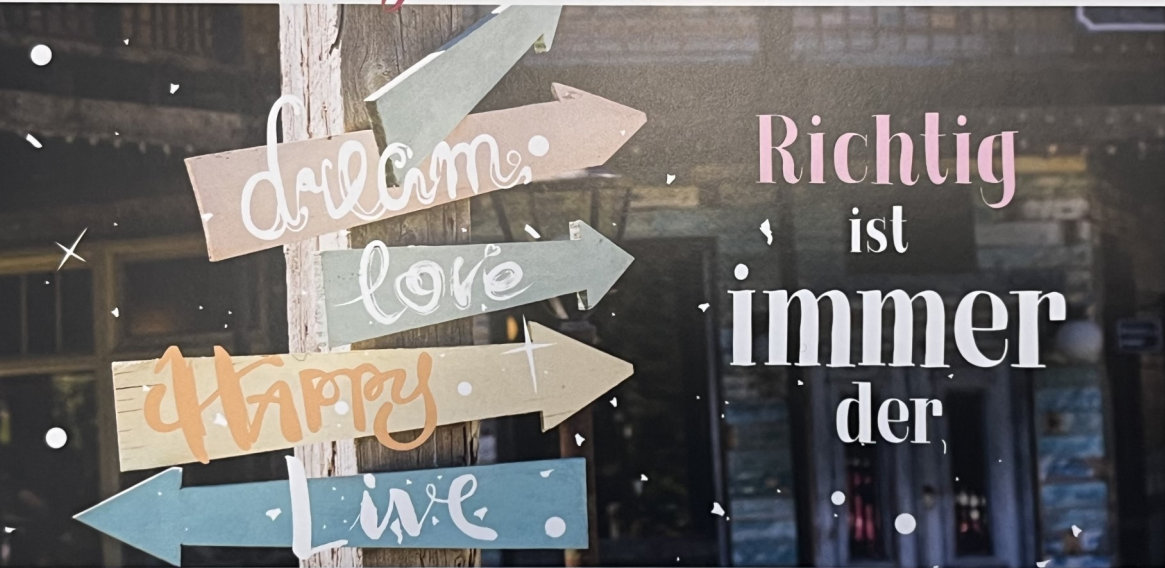 dream
love
Happy
Live
Richtig
ist
immer
der,